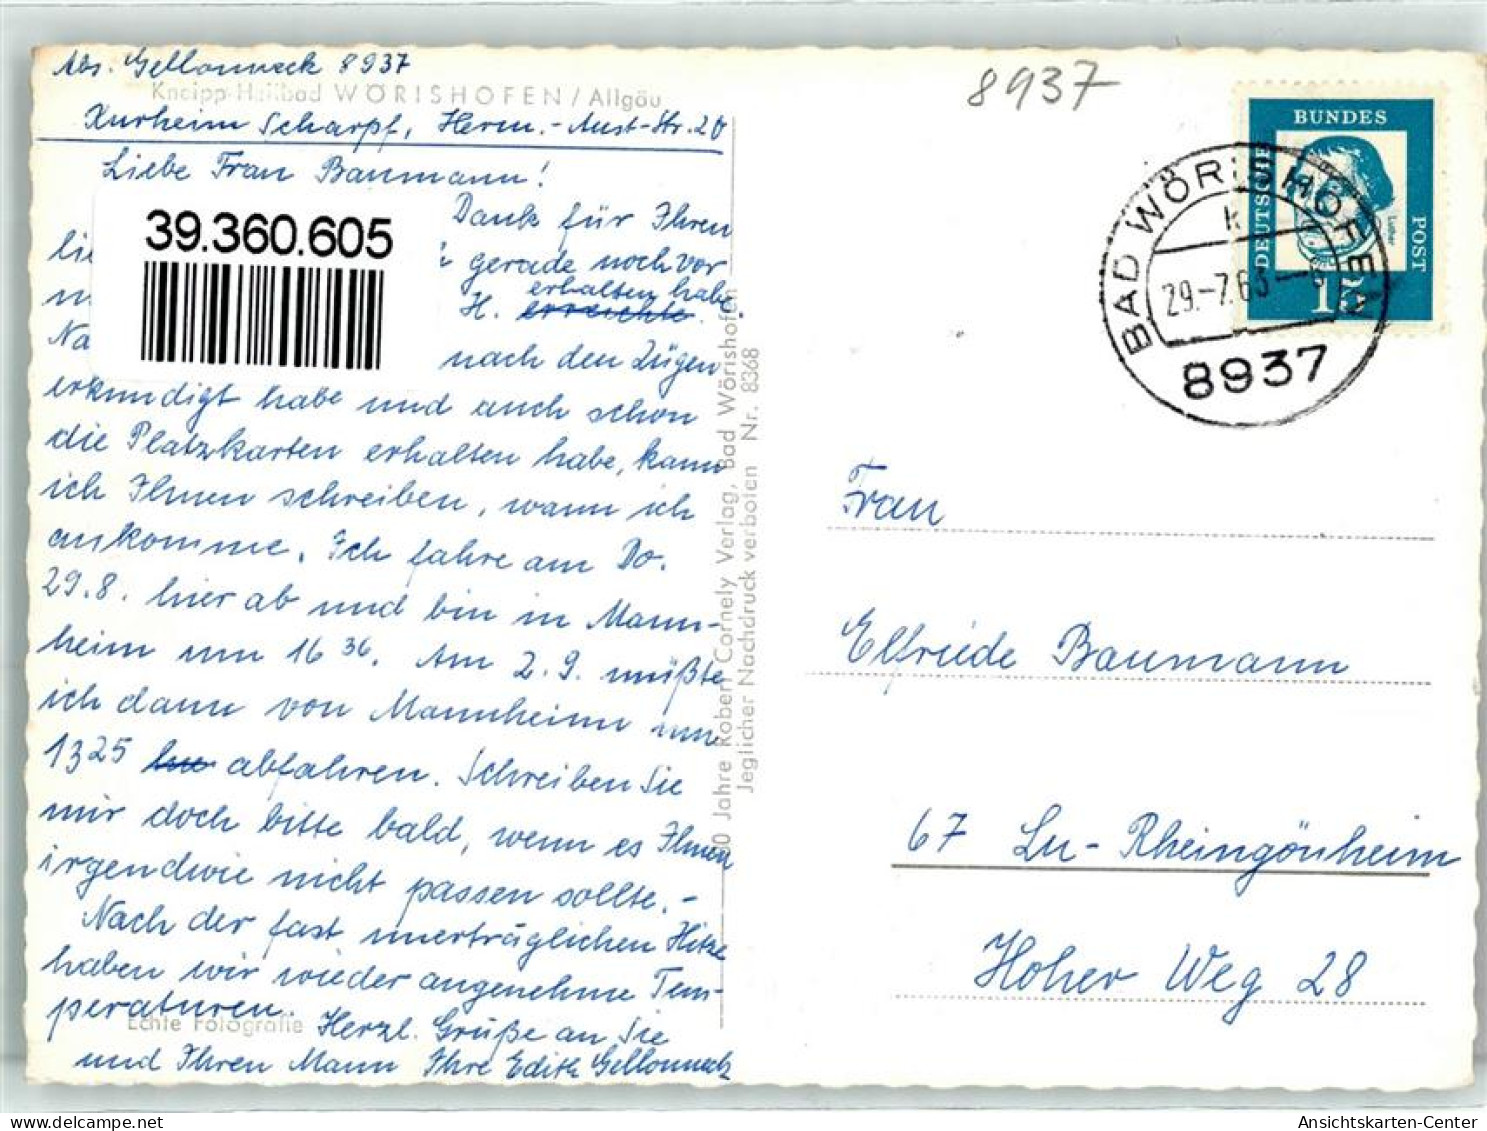 Abs. Gellonneck 8937
Kneipp-Heilbad WÖRISHOFEN / Allgäu
Kurheim Scharpf, Herm.-Aust-Str. 20
Liebe Frau Baumann!
Dank für Ihren
gerade noch vor
erhalten habe.
H. erreichte.
Na
nach den Zügen
erkundigt habe und auch schon
die Platzkarten erhalten habe, kann
ich Ihnen schreiben, wann ich
ankomme. Ich fahre am Do.
29.8. hier ab und bin in Mann-
heim um 16 36. Am 2.9. müßte
ich dann von Mannheim um
13 25 abfahren. Schreiben Sie
mir doch bitte bald, wenn es Ihnen
irgendwie nicht passen sollte. -
Nach der fast unerträglichen Hitze
haben wir wieder angenehme Tem-
peraturen. Herzl. Grüße an Sie
und Ihren Mann Ihre Edith Gellonneck
Echte Fotografie
39.360.605
Jahre Robert Cornely Verlag, Bad Wörishofen
Jeglicher Nachdruck verboten Nr. 8368
8937
DEUTSCHE
BUNDES
POST
Luther
15
BAD WÖRISHOFEN
k
29.-7.63
8937
Frau
Elfriede Baumann
67 Lu-Rheingönheim
Hoher Weg 28
www.delcampe.net
Ansichtskarten-Center